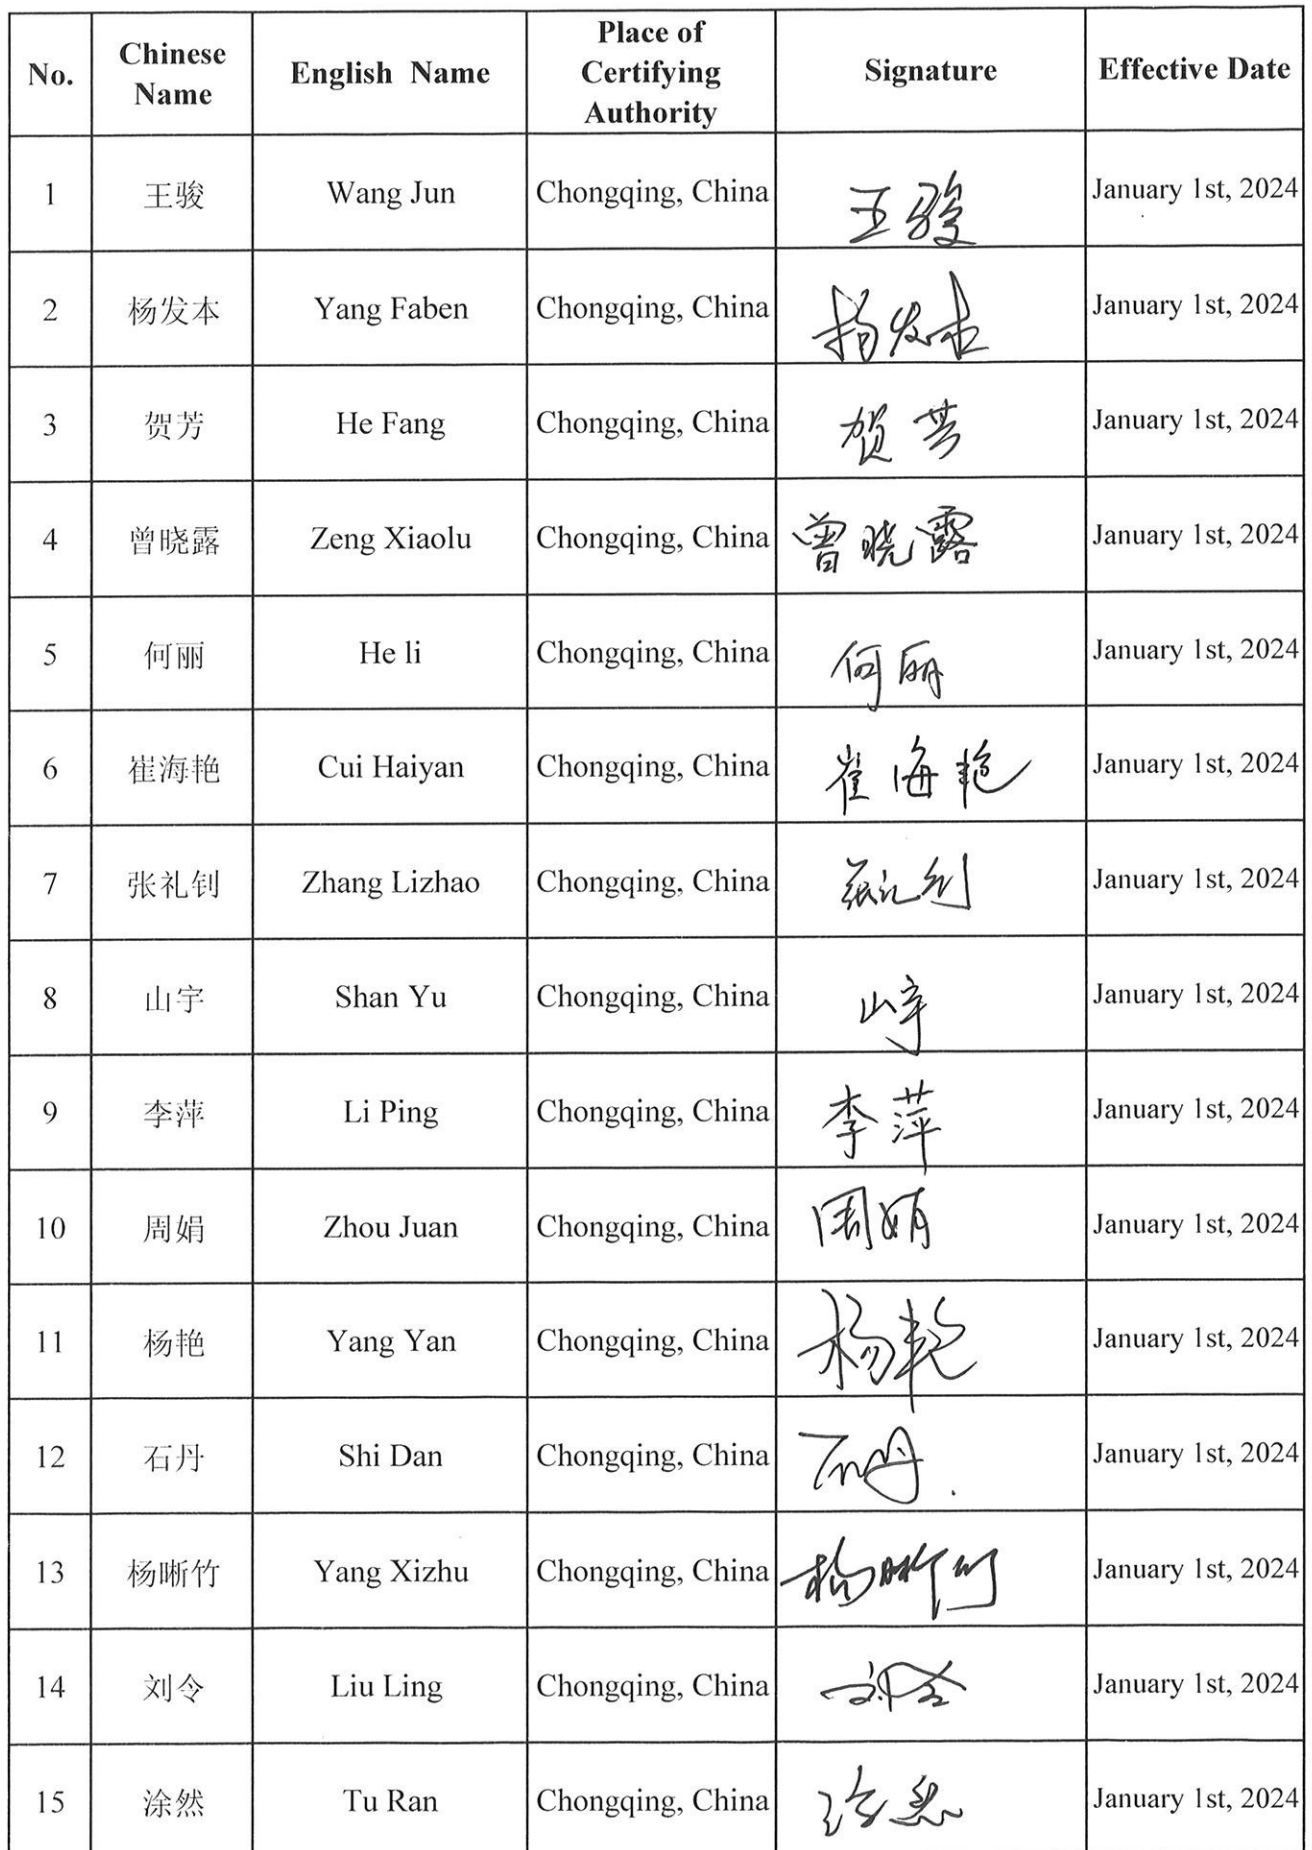 No. Chinese Name English Name Place of Certifying Authority Signature Effective Date
1 王骏 Wang Jun Chongqing, China 王骏 January 1st, 2024
2 杨发本 Yang Faben Chongqing, China 杨发本 January 1st, 2024
3 贺芳 He Fang Chongqing, China 贺芳 January 1st, 2024
4 曾晓露 Zeng Xiaolu Chongqing, China 曾晓露 January 1st, 2024
5 何丽 He li Chongqing, China 何丽 January 1st, 2024
6 崔海艳 Cui Haiyan Chongqing, China 崔海艳 January 1st, 2024
7 张礼钊 Zhang Lizhao Chongqing, China 张礼钊 January 1st, 2024
8 山宇 Shan Yu Chongqing, China 山宇 January 1st, 2024
9 李萍 Li Ping Chongqing, China 李萍 January 1st, 2024
10 周娟 Zhou Juan Chongqing, China 周娟 January 1st, 2024
11 杨艳 Yang Yan Chongqing, China 杨艳 January 1st, 2024
12 石丹 Shi Dan Chongqing, China 石丹 January 1st, 2024
13 杨晰竹 Yang Xizhu Chongqing, China 杨晰竹 January 1st, 2024
14 刘令 Liu Ling Chongqing, China 刘令 January 1st, 2024
15 涂然 Tu Ran Chongqing, China 涂然 January 1st, 2024